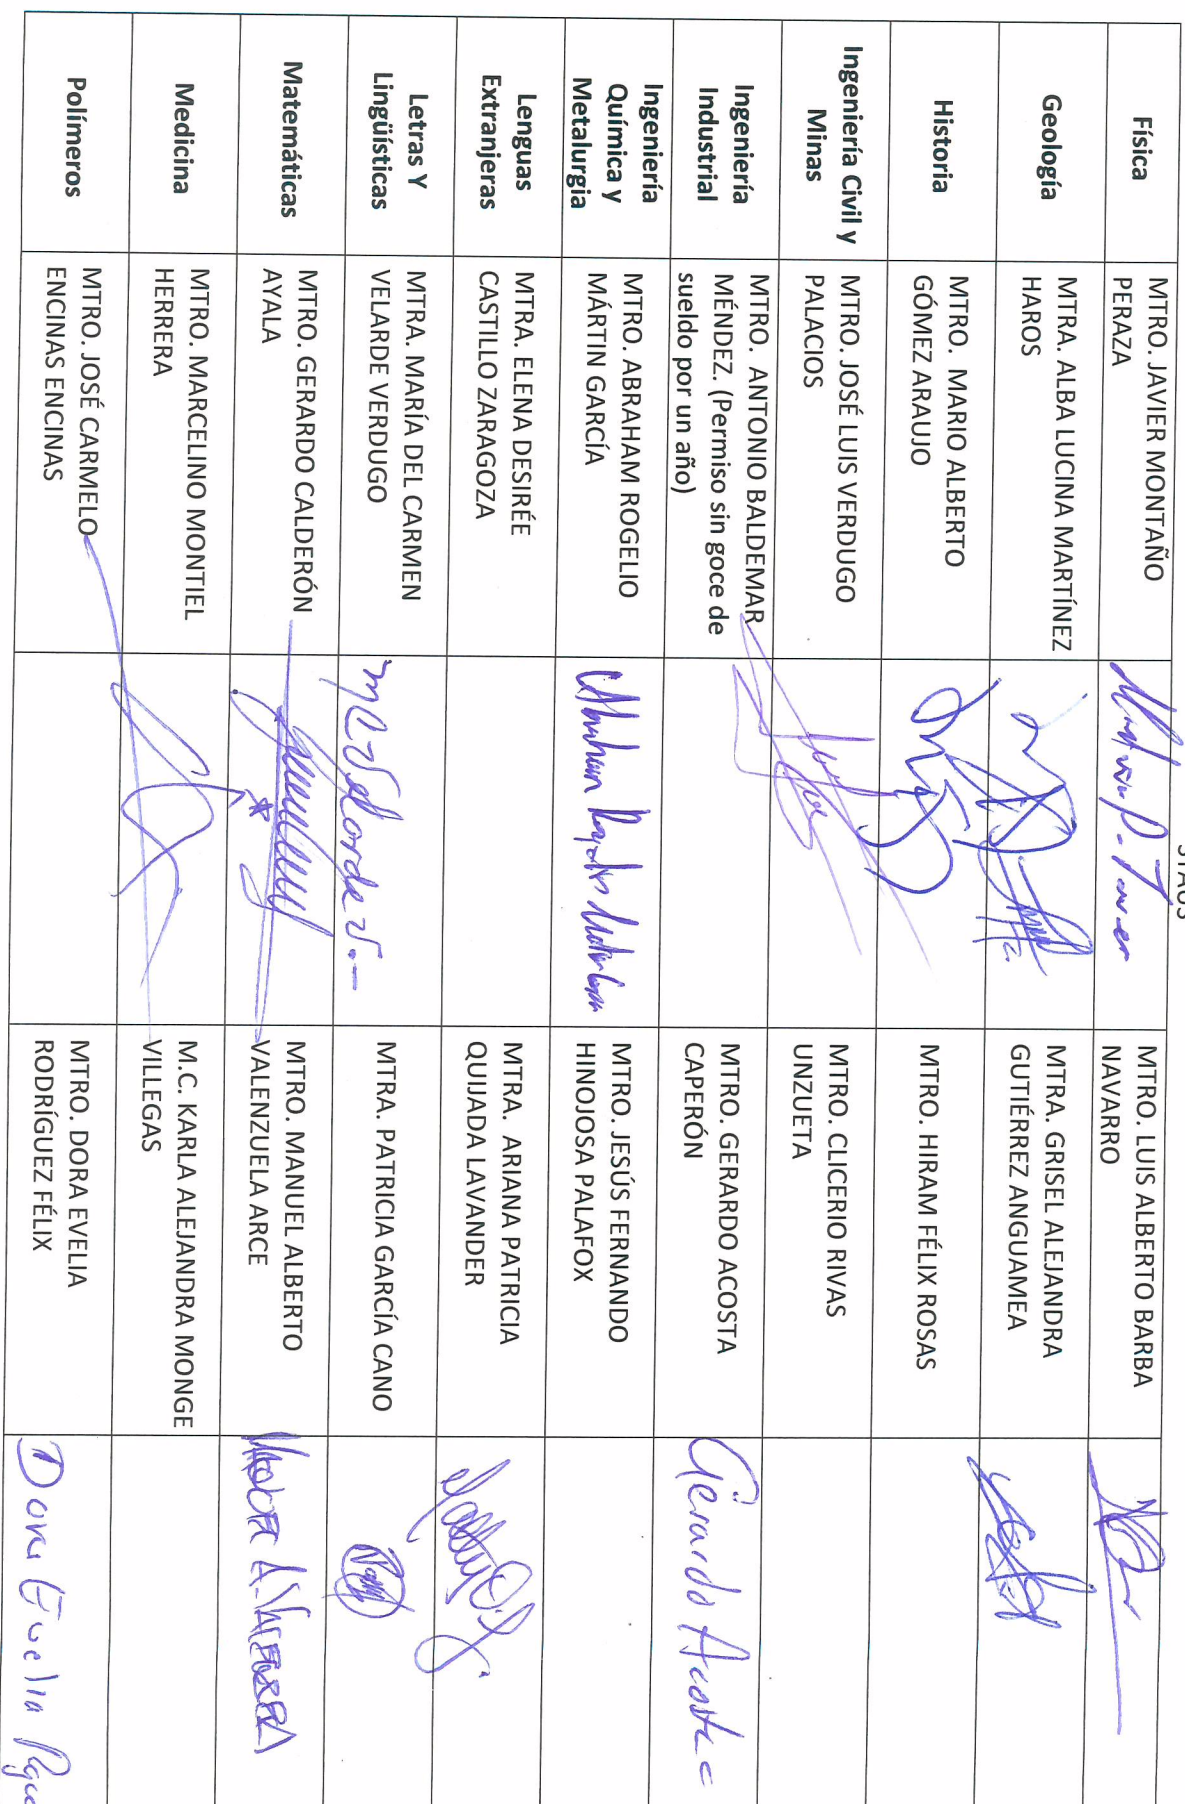 STAUS
Física
MTRO. JAVIER MONTAÑO
PERAZA
MTRO. LUIS ALBERTO BARBA
NAVARRO
Geología
MTRA. ALBA LUCINA MARTÍNEZ
HAROS
MTRA. GRISEL ALEJANDRA
GUTIÉRREZ ANGUAMEA
Historia
MTRO. MARIO ALBERTO
GÓMEZ ARAUJO
MTRO. HIRAM FÉLIX ROSAS
Ingeniería Civil y
Minas
MTRO. JOSÉ LUIS VERDUGO
PALACIOS
MTRO. CLICERIO RIVAS
UNZUETA
Ingeniería
Industrial
MTRO. ANTONIO BALDEMAR
MÉNDEZ. (Permiso sin goce de
sueldo por un año)
MTRO. GERARDO ACOSTA
CAPERÓN
Gerardo Acosta C
Ingeniería
Química y
Metalurgia
MTRO. ABRAHAM ROGELIO
MÁRTIN GARCÍA
Abraham Rogelio
MTRO. JESÚS FERNANDO
HINOJOSA PALAFOX
Lenguas
Extranjeras
MTRA. ELENA DESIRÉE
CASTILLO ZARAGOZA
MTRA. ARIANA PATRICIA
QUIJADA LAVANDER
Letras Y
Lingüísticas
MTRA. MARÍA DEL CARMEN
VELARDE VERDUGO
MC Velarde V.-
MTRA. PATRICIA GARCÍA CANO
Matemáticas
MTRO. GERARDO CALDERÓN
AYALA
MTRO. MANUEL ALBERTO
VALENZUELA ARCE
Medicina
MTRO. MARCELINO MONTIEL
HERRERA
M.C. KARLA ALEJANDRA MONGE
VILLEGAS
Polímeros
MTRO. JOSÉ CARMELO
ENCINAS ENCINAS
MTRO. DORA EVELIA
RODRÍGUEZ FÉLIX
Dora Evelia